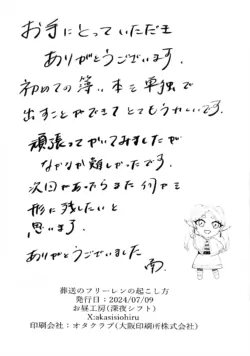 お手にとっていただき
ありがとうございます.
初めての薄い本を単独で
出すことができてとてもうれしいです.
頑張ってかいてみましたが
なかなか難しかったです.
次回があったら何かを
形に残したいと
思います.
ありがとうございました
葬送のフリーレンの起こし方
発行日:2024/07/09
お昼工房(深夜シフト)
X:akasisiohiru
印刷会社:オタクラブ(大阪印刷所株式会社)